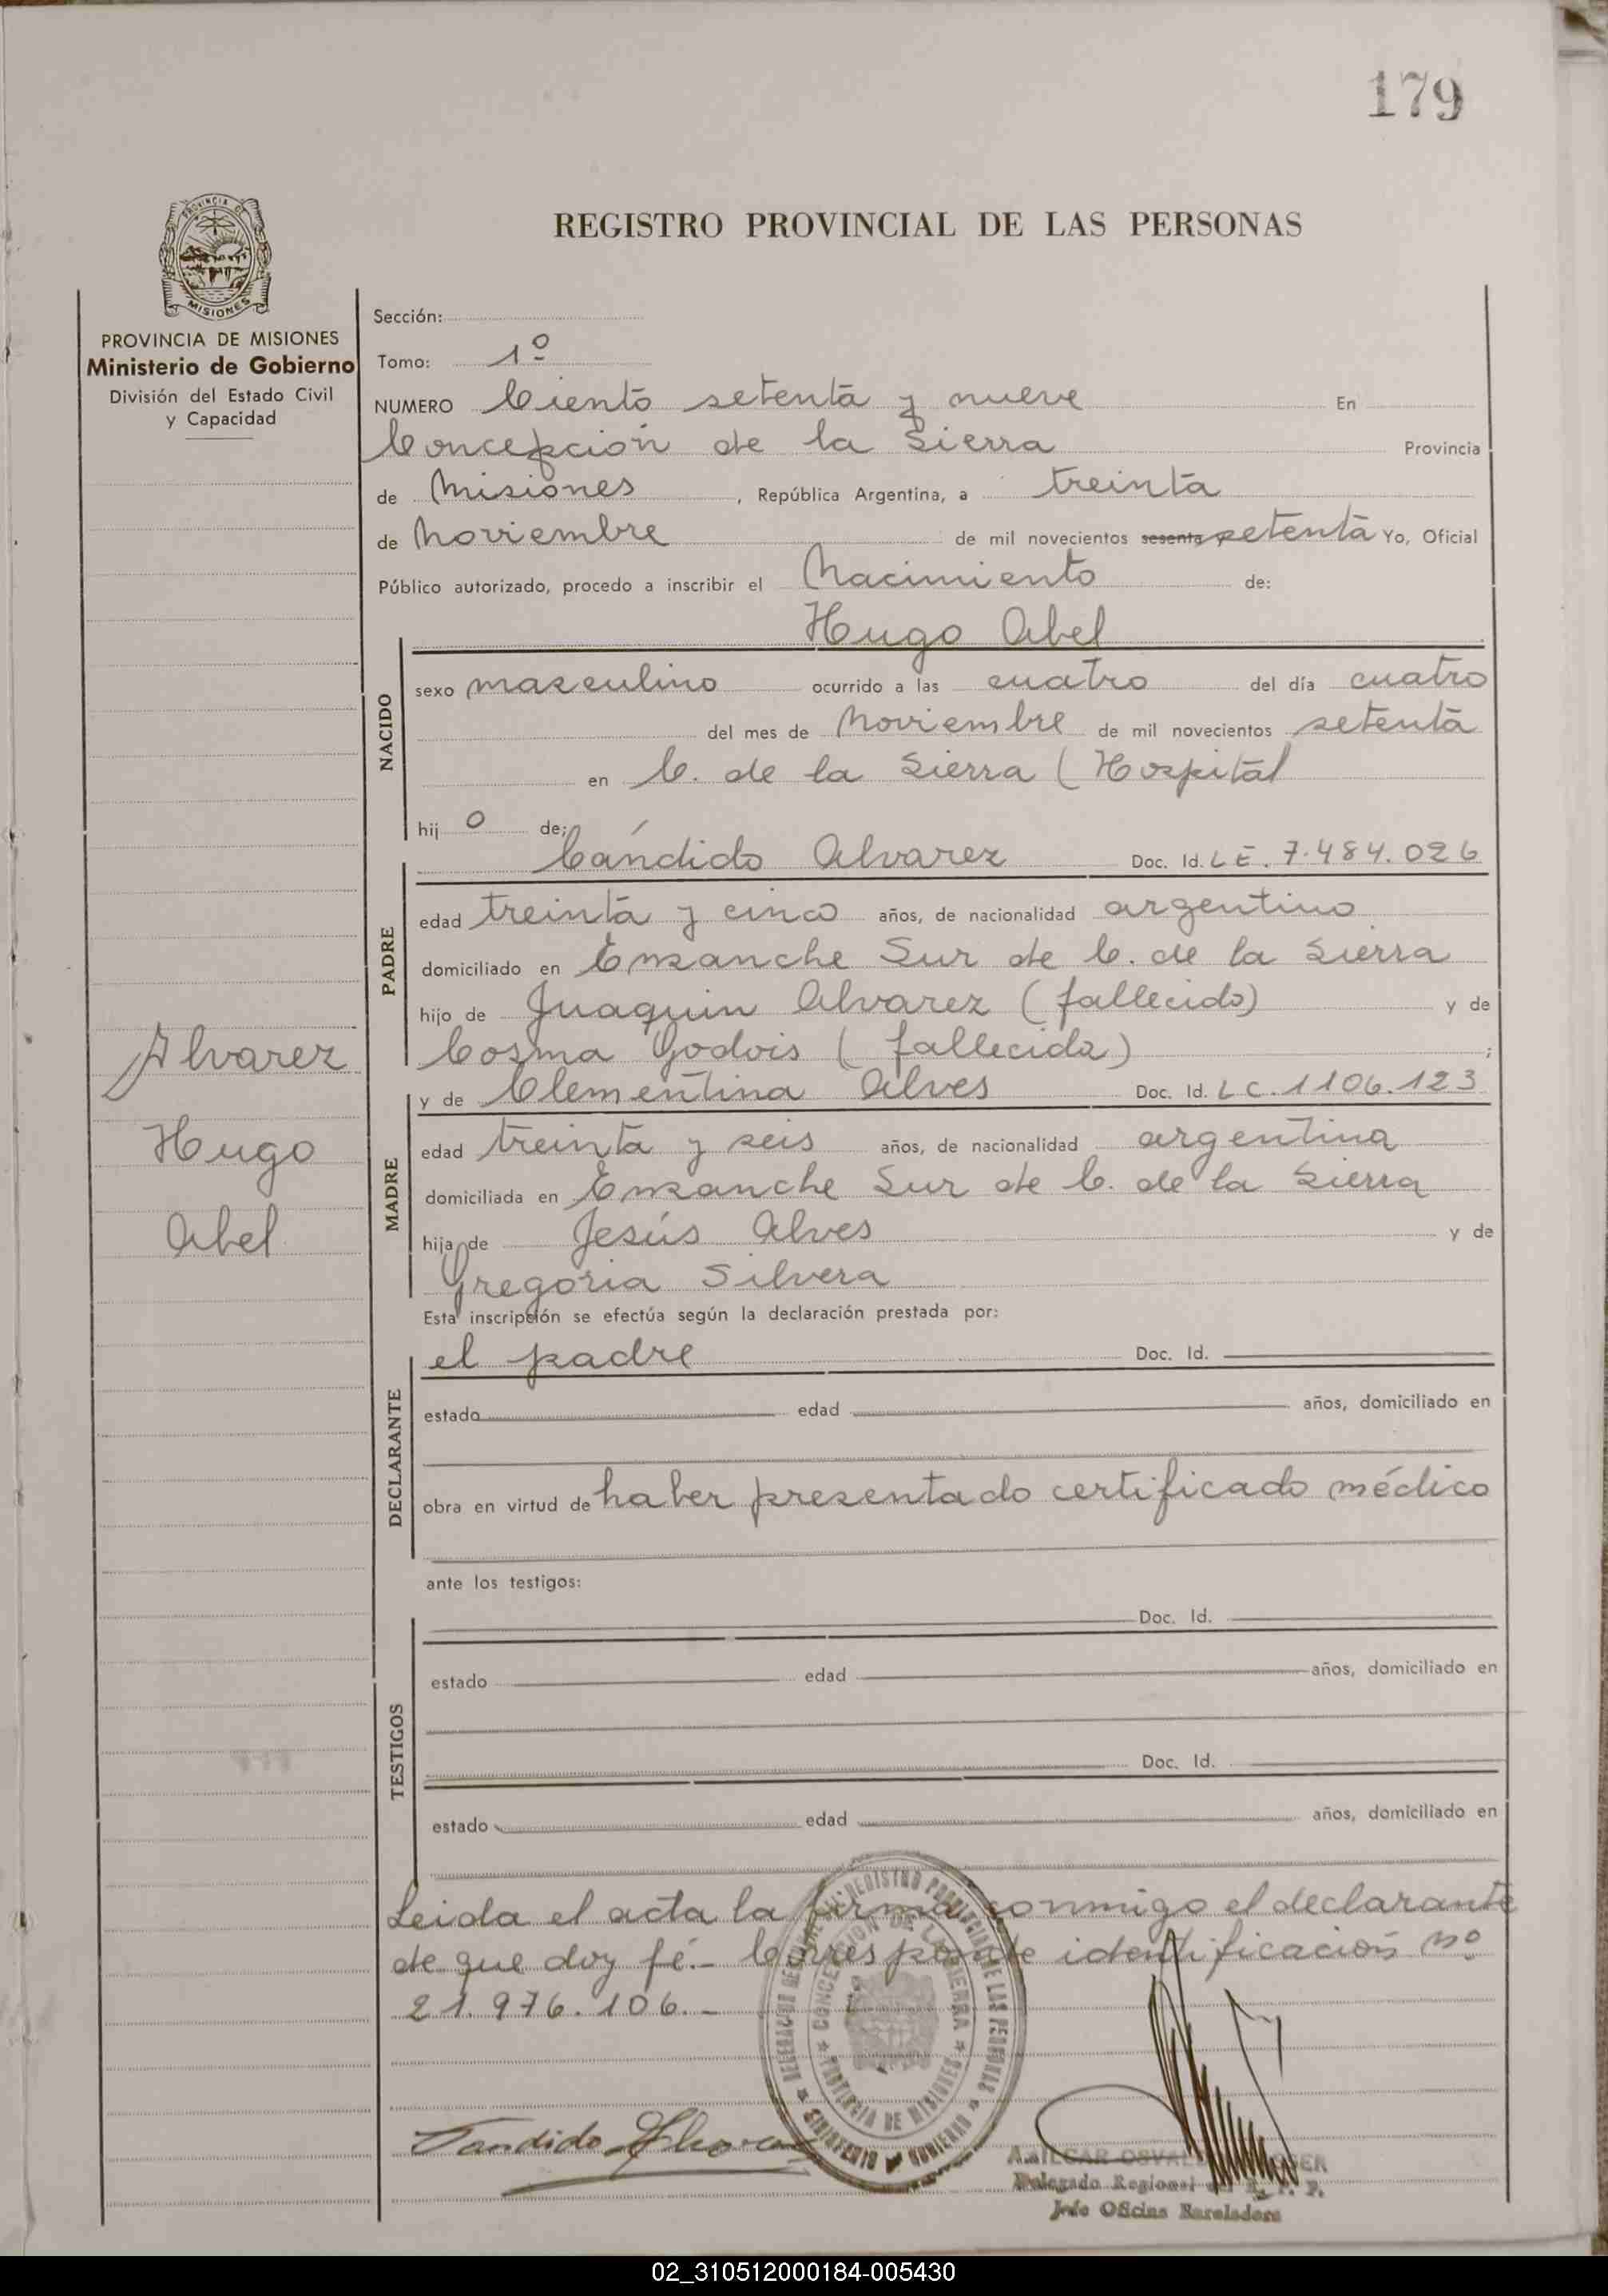 179
PROVINCIA DE
MISIONES
PROVINCIA DE MISIONES
Ministerio de Gobierno
División del Estado Civil
y Capacidad
Alvarez
Hugo
Abel
REGISTRO PROVINCIAL DE LAS PERSONAS
Sección:
Tomo: 1º
NUMERO Ciento setenta y nueve En
Concepción de la Sierra Provincia
de Misiones, República Argentina, a treinta
de Noviembre de mil novecientos sesenta setenta Yo, Oficial
Público autorizado, procedo a inscribir el Nacimiento de:
Hugo Abel
NACIDO
sexo masculino ocurrido a las cuatro del día cuatro
del mes de Noviembre de mil novecientos setenta
en C. de la Sierra (Hospital
hij o de;
Cándido Alvarez Doc. Id. LE. 7.484.026
PADRE
edad treinta y cinco años, de nacionalidad argentino
domiciliado en Ensanche Sur de C. de la Sierra
hijo de Juaquin Alvarez (fallecido) y de
Cosma Godois (fallecida) ;
y de Clementina Alves Doc. Id. LC. 1106.123
MADRE
edad treinta y seis años, de nacionalidad argentina
domiciliada en Ensanche Sur de C. de la Sierra
hija de Jesús Alves y de
Gregoria Silvera
Esta inscripción se efectúa según la declaración prestada por:
el padre Doc. Id.
DECLARANTE
estado edad años, domiciliado en
obra en virtud de haber presentado certificado médico
ante los testigos:
Doc. Id.
TESTIGOS
estado edad años, domiciliado en
Doc. Id.
estado edad años, domiciliado en
Leida el acta la firma conmigo el declarante
de que doy fé.- Corresponde identificación Nº
21.976.106.-
CONCEPCION DE LA SIERRA
PROVINCIA DE MISIONES
MINISTERIO GOBIERNO
Candido Alvarez
Delegado Regional
Jefe Oficina
02_310512000184-005430